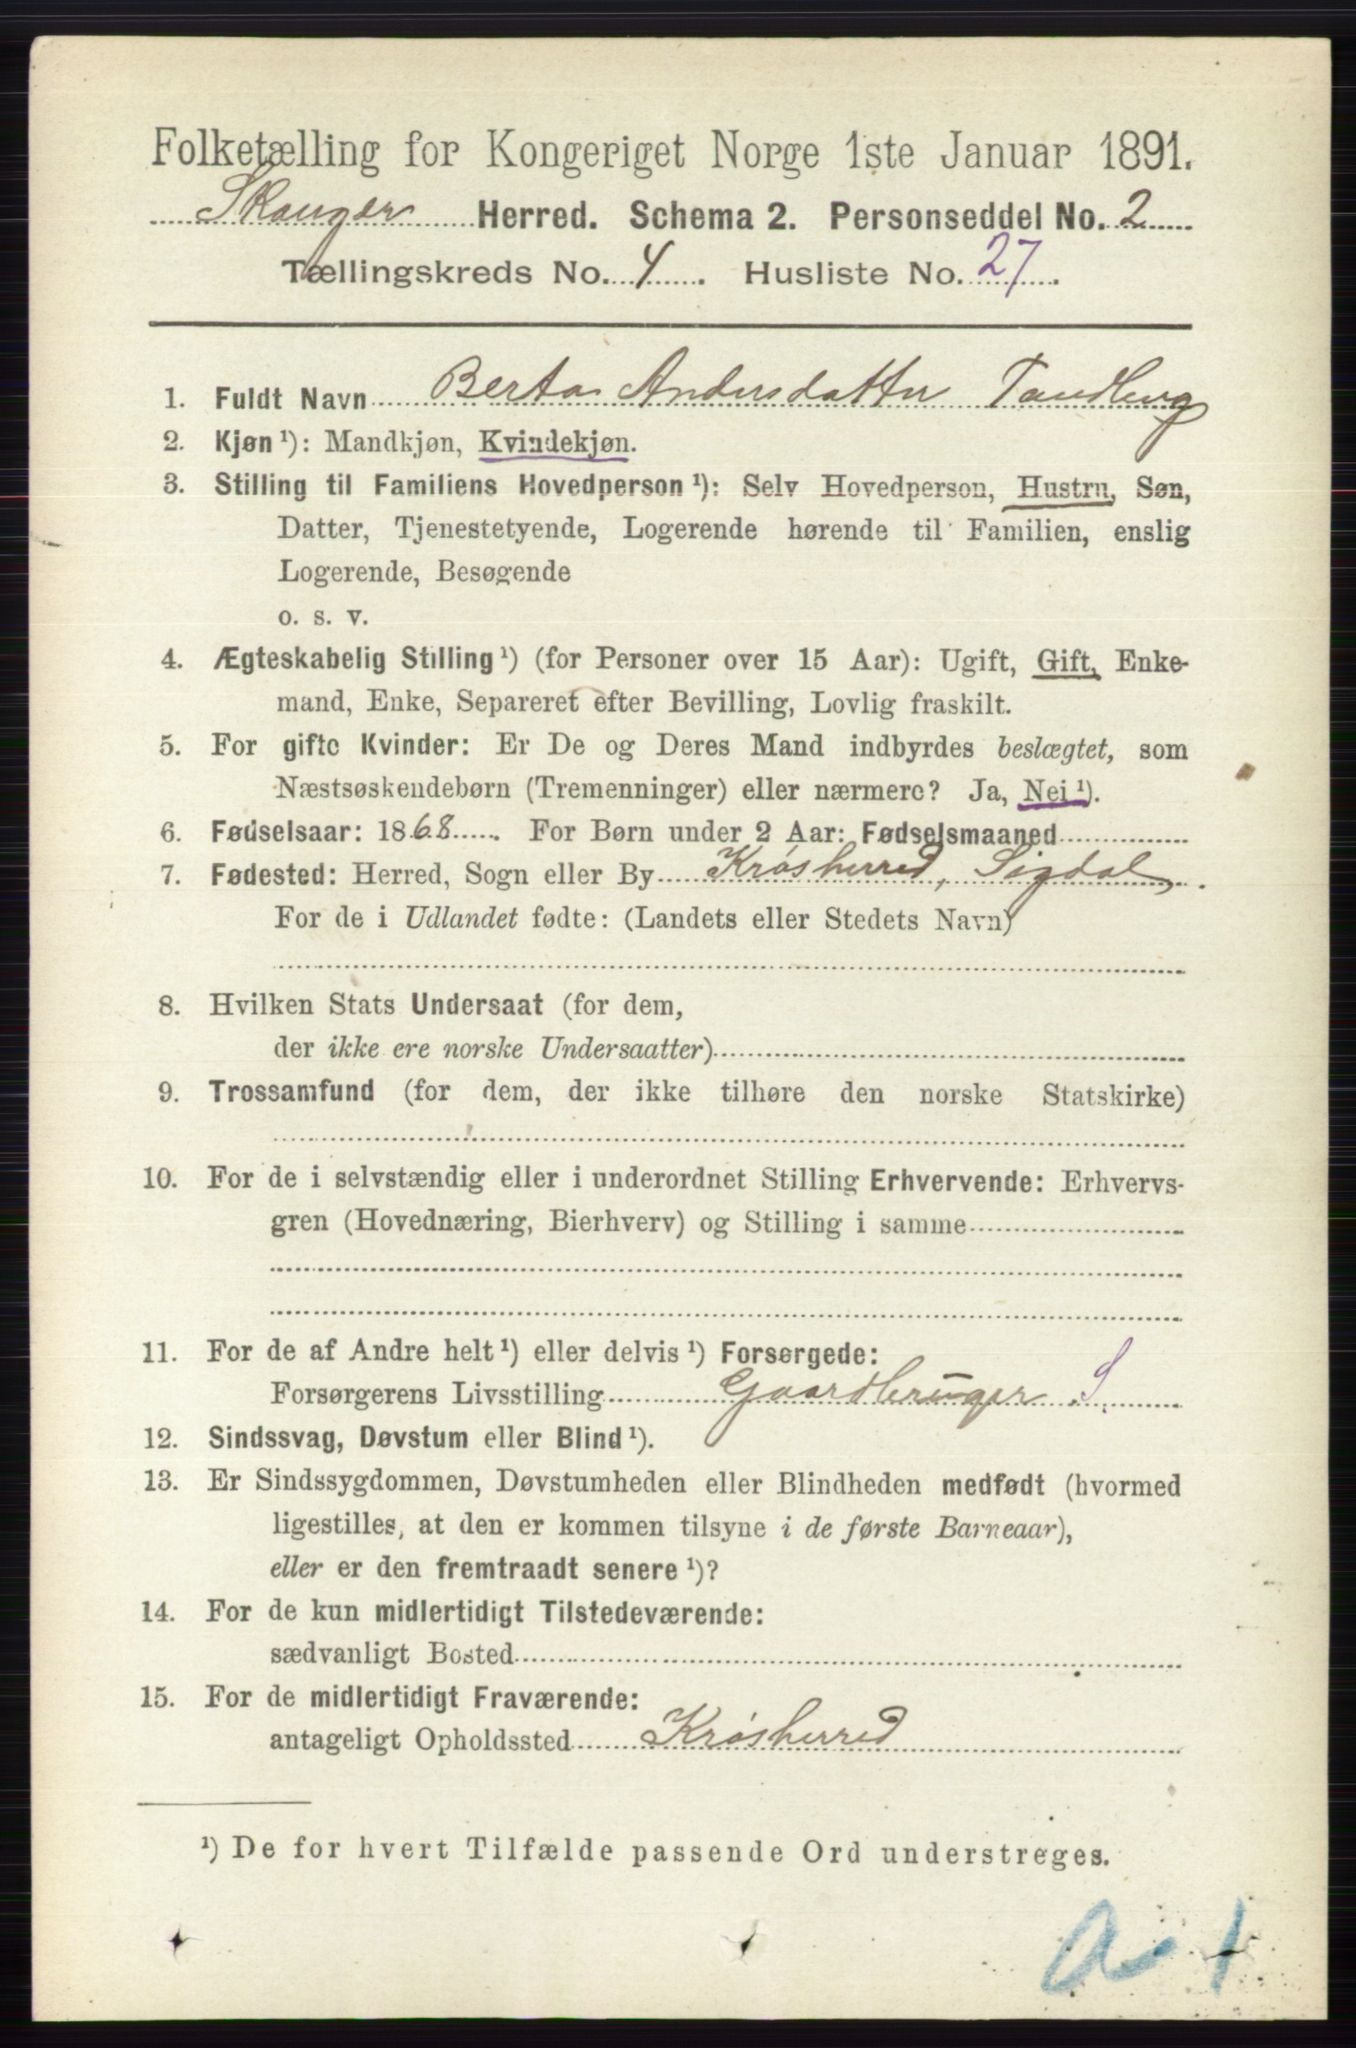 Folketælling for Kongeriget Norge 1ste Januar 1891.
Skouger Herred. Schema 2. Personseddel No. 2
Tællingskreds No. 4. Husliste No. 27.
1. Fuldt Navn Berta Andersdatter Tandberg
2. Kjøn ¹): Mandkjøn, Kvindekjøn.
3. Stilling til Familiens Hovedperson ¹): Selv Hovedperson, Hustru, Søn,
Datter, Tjenestetyende, Logerende hørende til Familien, enslig
Logerende, Besøgende
o. s. v.
4. Ægteskabelig Stilling ¹) (for Personer over 15 Aar): Ugift, Gift, Enke-
mand, Enke, Separeret efter Bevilling, Lovlig fraskilt.
5. For gifte Kvinder: Er De og Deres Mand indbyrdes beslægtet, som
Næstsøskendebørn (Tremenninger) eller nærmere? Ja, Nei ¹).
6. Fødselsaar: 1868. For Børn under 2 Aar: Fødselsmaaned
7. Fødested: Herred, Sogn eller By Krøsherred, Sigdal.
For de i Udlandet fødte: (Landets eller Stedets Navn)
8. Hvilken Stats Undersaat (for dem,
der ikke ere norske Undersaatter)
9. Trossamfund (for dem, der ikke tilhøre den norske Statskirke)
10. For de i selvstændig eller i underordnet Stilling Erhvervende: Erhvervs-
gren (Hovednæring, Bierhverv) og Stilling i samme
11. For de af Andre helt ¹) eller delvis ¹) Forsørgede:
Forsørgerens Livsstilling Gaardbruger S.
12. Sindssvag, Døvstum eller Blind ¹).
13. Er Sindssygdommen, Døvstumheden eller Blindheden medfødt (hvormed
ligestilles, at den er kommen tilsyne i de første Barneaar),
eller er den fremtraadt senere ¹)?
14. For de kun midlertidigt Tilstedeværende:
sædvanligt Bosted
15. For de midlertidigt Fraværende:
antageligt Opholdssted Krøsherred
¹) De for hvert Tilfælde passende Ord understreges.
a-1